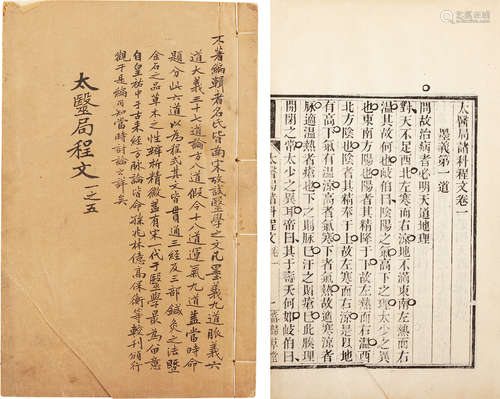 太醫局程文 一之五
不著編輯者名氏皆南宋攷試醫學之文凡墨義九道脈義六
道大義三十七道論方八道假令十八道運氣九道蓋當時命
題分此六道以為程式其文皆貫通三經及三部鍼灸之法暨
金石之品草木之性辨析精微蓋有宋一代于醫學最為留意
自皇祐中于古來經方脈論皆命孫兆林億高保衡等較刊頒行
觀于是編可知當時討論之詳矣
太醫局諸科程文卷一
墨義第一道
問故治病者必明天道地理
對天不足西北左寒而右涼地不滿東南左熱而右
溫其故何也岐伯曰陰陽之氣高下之理太少之異
也東南方陽也陽者其精降于下故左熱而右溫西
北方陰也陰者其精奉于上故左寒而右涼是以地
有高下氣有溫涼高者氣寒下者氣熱故適寒涼者
脹適溫熱者瘡也下之則脹已汗之則瘡已此腠理
開閉之常太少之異耳帝曰其于壽夭何如岐伯曰
太醫局諸科程文 卷一